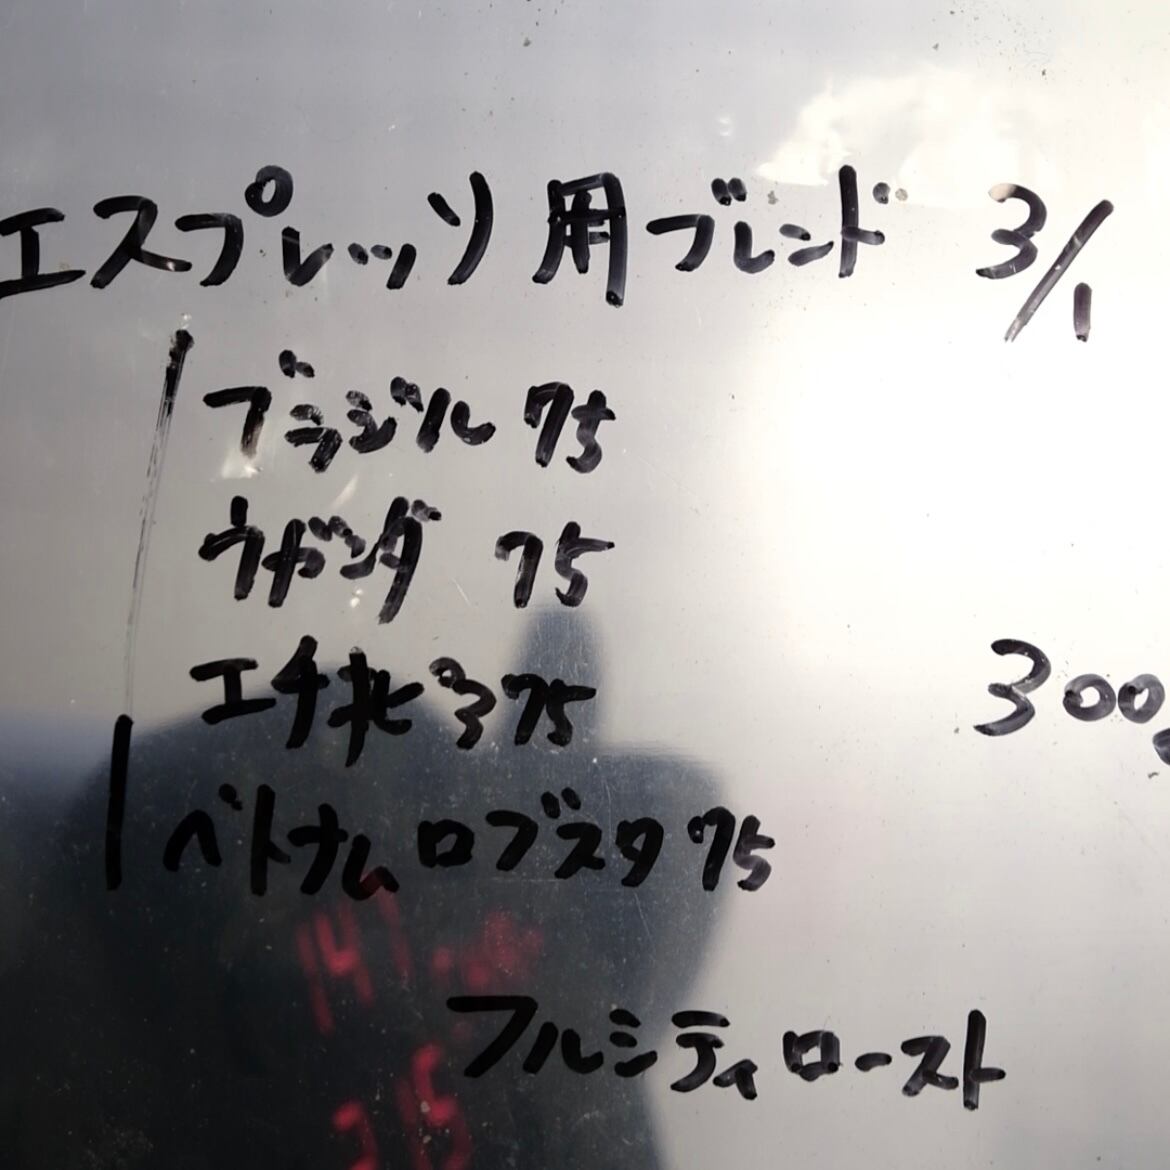 エスプレッソ用ブレンド 3/1
ブラジル 75
ウガンダ 75
エチオピア 75
300g
ベトナムロブスタ 75
フルシティロースト